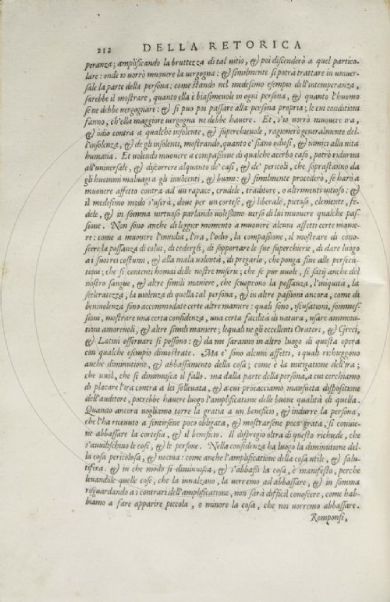 212 DELLA RETORICA
peranza; amplificando la bruttezza di tal vitio, & poi discenderò a quel partico-
lare: onde io vorrò muouere la vergogna: & similmente si potrà trattare in vniuer-
sale la parte della persona: come stando nel medesimo essempio dell'intemperanza,
sarebbe il mostrare, quanto ella è biasimeuole in ogni persona, & quanto l'huomo
se ne debbe vergognare: & si può poi passare alla persona propria; le cui conditioni
fanno, ch'ella maggiore vergogna ne debbe hauere. Et, s'io vorrò muouere ira,
& odio contra a qualche insolente, & superbo, ragionerò generalmente del-
l'insolenza, & de gli insolenti, mostrando, quanto e' siano odiosi, & nimici alla vita
humana. Et volendo muouere a compassione di qualche acerbo caso, potrò ridurmi
all'vniuersale, & discorrere alquanto de' casi, & de' pericoli, che soprastanno da
gli huomini maluagi a gli innocenti, & buoni: & similmente procederò, se harò a
muouere affetto contra ad vn rapace, crudele, traditore, o altrimenti vitioso: &
il medesimo modo s'vserà, doue per vn cortese, & liberale, pietoso, clemente, fe-
dele, & in somma virtuoso parlando volessimo verso di lui muouere qualche pas-
sione. Non sono anche di legger momento a muouere alcuni affetti certe manie-
re: come a muouere l'inuidia, l'ira, l'odio, la compassione, il mostrare di cono-
scere la possanza di colui, di cedergli, di sopportare le sue superchierie, di dare luogo
a i suoi rei costumi, & alla mala volontà, di pregarlo, che ponga fine alle persecu-
tioni; che si contenti homai delle nostre miserie; che se pur vuole, si satij anche del
nostro sangue, & altre simili maniere, che scuoprono la possanza, l'iniquità, la
sceleratezza, la violenza di quella tal persona, & in altre passioni ancora, come di
beneuolenza sono accommodate certe altre maniere: quali sono, scusationi, sommes-
sioni, mostrare vna certa confidenza, vna certa facilità di natura, vsare ammoni-
tioni amoreuoli, & altre simili maniere; lequali ne gli eccellenti Oratori, & Greci,
& Latini osseruare si possono: & da me saranno in altro luogo di questa opera
con qualche essempio dimostrate. Ma e' sono alcuni affetti, i quali richieggono
anche diminutione, & abbassamento della cosa; come è la mitigatione dell'ira;
che vuol, che si diminuisca il fallo. ma dalla parte della persona, a cui cerchiamo
di placare l'ira contra a lei solleuata, & a cui procacciamo mansueta dispositione
dell'auditore, potrebbe hauere luogo l'amplificatione delle buone qualità di quella.
Quanto ancora vogliamo torre la gratia a vn beneficio, & indurre la persona,
che l'ha riceuuto a sentirsene poco obligata, & mostrarsene poco grata, si conuie-
ne abbassare la cortesia, & il beneficio. Il dispregio oltra di questo richiede, che
s'auuiliscano le cose, & le persone. Nella confidenza ha luogo la diminutione del-
la cosa pericolosa, & nociua: come anche l'amplificatione della cosa vtile, & salu-
tifera. & in che modo si diminuisca, & s'abbassi la cosa, è manifesto; perche
leuandole quelle cose, che la innalzano, la verremo ad abbassare, & in somma
risguardando a i contrari dell'amplificatione, non sarà difficil conoscere, come hab-
biamo a fare apparire piccola, o minore la cosa, che noi vorremo abbassare.
Romponsi,